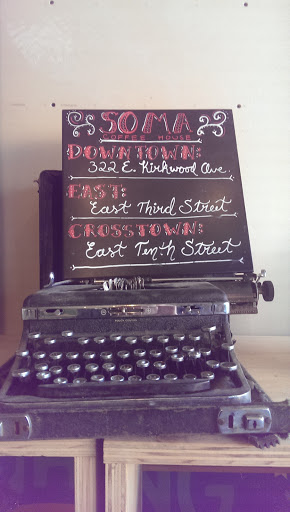 SOMA
COFFEE HOUSE
DOWNTOWN:
322 E. Kirkwood Ave
EAST:
East Third Street
CROSSTOWN:
East Tenth Street